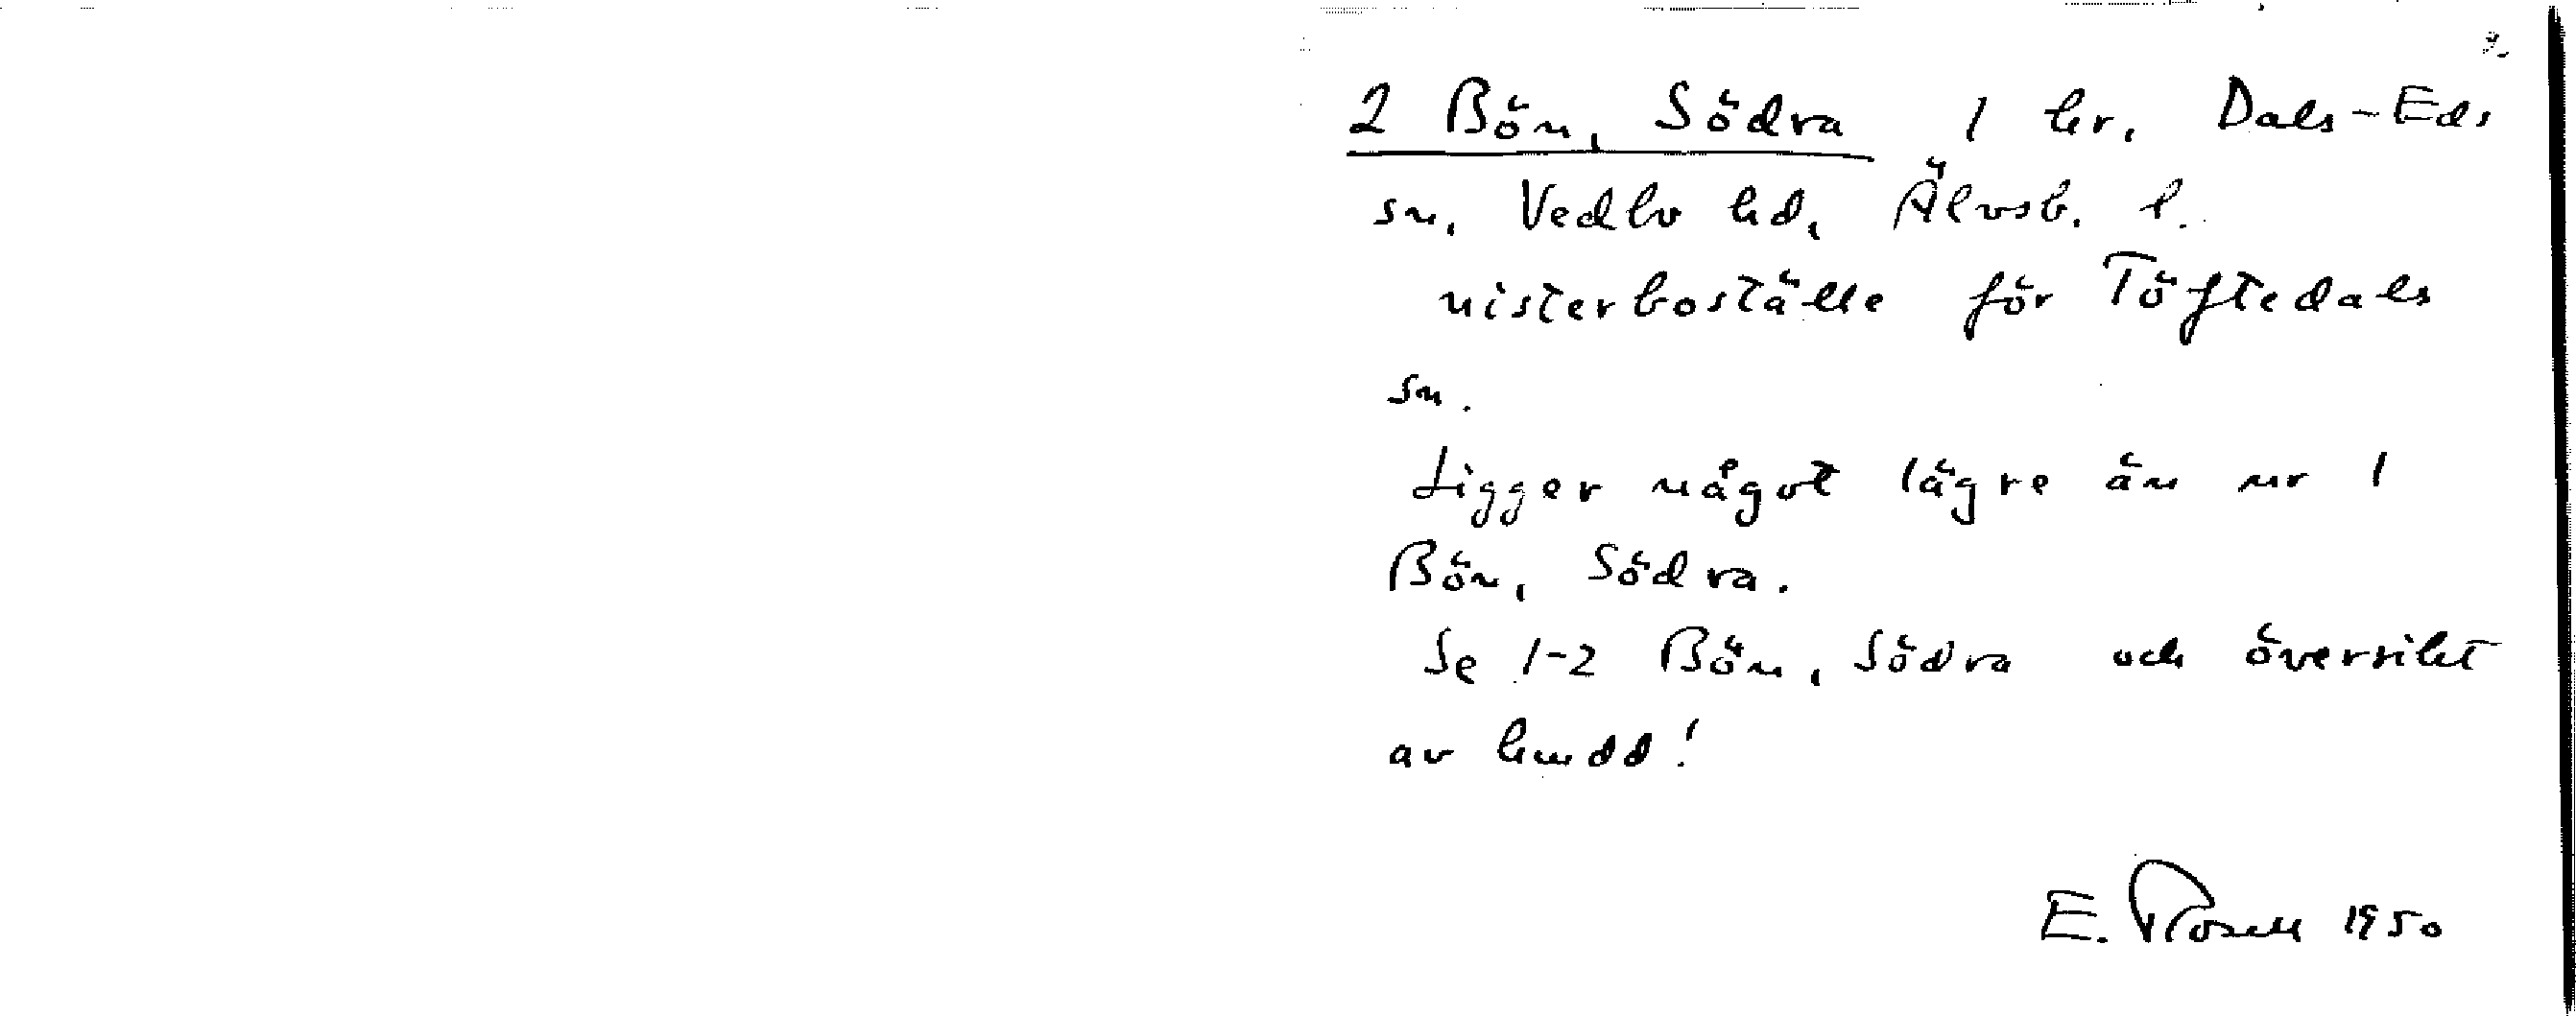 2 Bön, Södra 1 hr. Dals-Eds
sn, Vedbo hd, Älvsb. l.
nisterboställe för Töftedals
sn.
Ligger något lägre än nr 1
Bön, Södra.
Se 1-2 Bön, Södra och översikt
av hmdd!
E. Rosell 1950